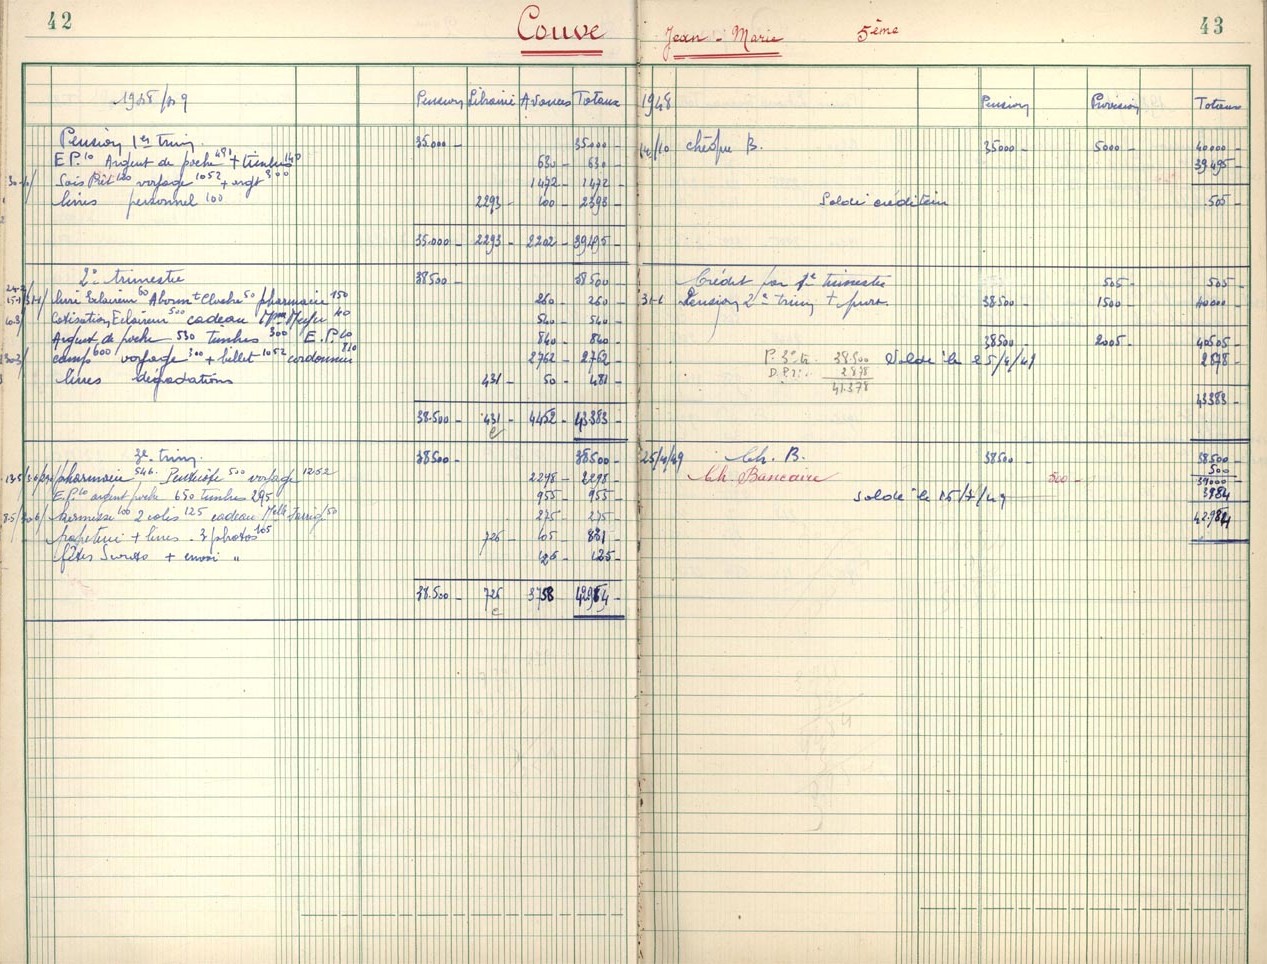 42
Couve Jean-Marie 5ème
43
1948/49 Pension Librairie Avances Totaux
Pension 1er trim. 35.000 - 35.000 -
E.P. 10 Argent de poche 481 + timbres 140 630 - 630 -
voyage 1052 + argt 300 1472 - 1472 -
livres personnel 100 2293 - 100 - 2393 -
35.000 - 2293 - 2202 - 39495 -
2e trimestre 38500 - 38500 -
Eclaireur 60 Abonnt Cloche 50 pharmacie 150 260 - 260 -
Cotisation Eclaireur 500 cadeau 40 540 - 540 -
Argent de poche 530 timbres 300 E.P. 10 840 - 840 -
camp 600 voyage 300 + billet 1052 cordonnier 810 2762 - 2762 -
livres dégradations 431 - 50 - 481 -
38.500 - 431 - 4452 - 43.383 -
3e trim. 38500 - 38500 -
pharmacie 546 - Pentecôte 500 voyage 1252 2298 - 2298 -
E.P. 10 argent poche 650 timbres 295 955 - 955 -
kermesse 100 2 colis 125 cadeau Melle 50 275 - 275 -
papeterie + livres - 3 photos 105 726 - 105 - 831 -
fêtes + envoi " 125 - 125 -
38.500 - 726 - 3758 42984 -
1948 Pension Provision Totaux
14/10 chèque B. 35000 - 5000 - 40000 -
39.495 -
Solde créditeur 505 -
Crédit par 1e trimestre 505 - 505 -
31-1 Pension 2e trim + prov. 38.500 - 1500 - 40000 -
38500 - 2005 - 40505 -
P. 3e tr. 38.500 Soldé le 25/4/49 2878 -
2.878
41.378
43383 -
25/4/49 Ch. B. 38500 - 38500 -
Ch. Bancaire 500 - 500 -
39000 -
Soldé le 15/7/49 3984
42.984